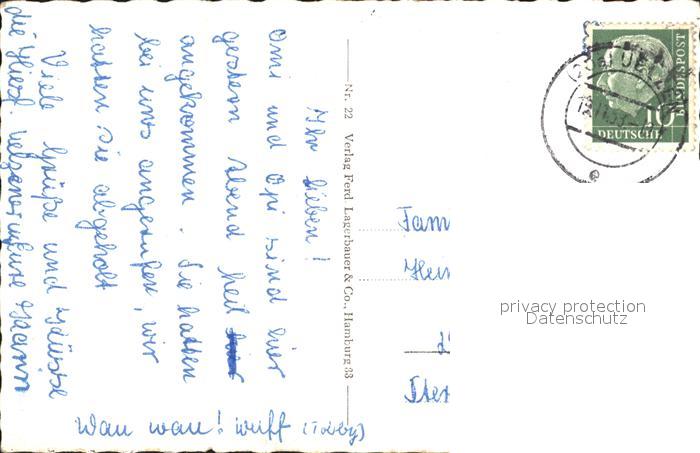 Ihr Lieben!
Omi und Opi sind hier
gestern Abend heil
angekommen. Sie hatten
bei uns angerufen, wir
hatten sie abgeholt
Viele Grüße und Küsse
die
Wau wau! wuff (Toby)
Nr. 22 Verlag Ferd. Lagerbauer & Co., Hamburg 33
Fam
Hein
DEUTSCHE
BUNDESPOST
10
privacy protection
Datenschutz